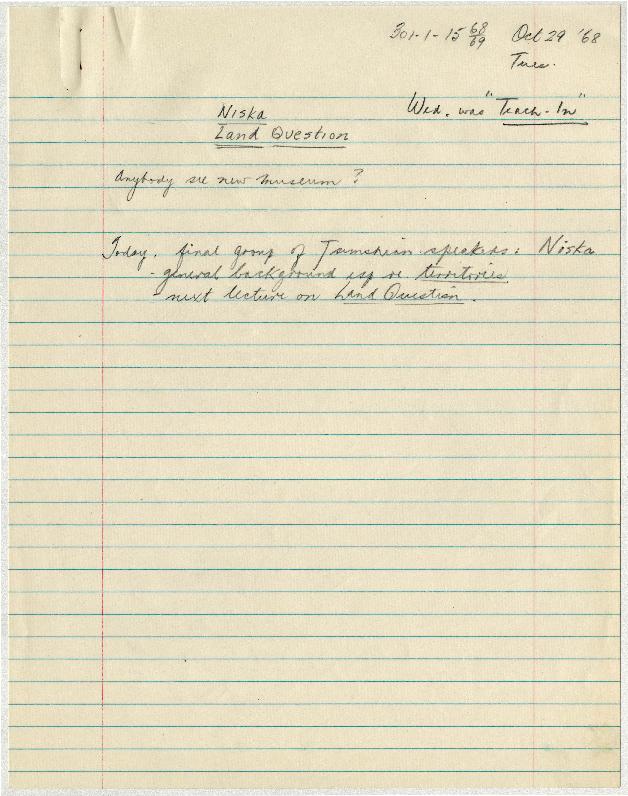 301-1-15 68/69 Oct 29 '68
Tues.
Wed. was "Teach-In"
Niska
Land Question
Anybody see new museum?
Today, final group of Tsimshian speakers: Niska
- general background esp re. territories
- next lecture on Land Question.